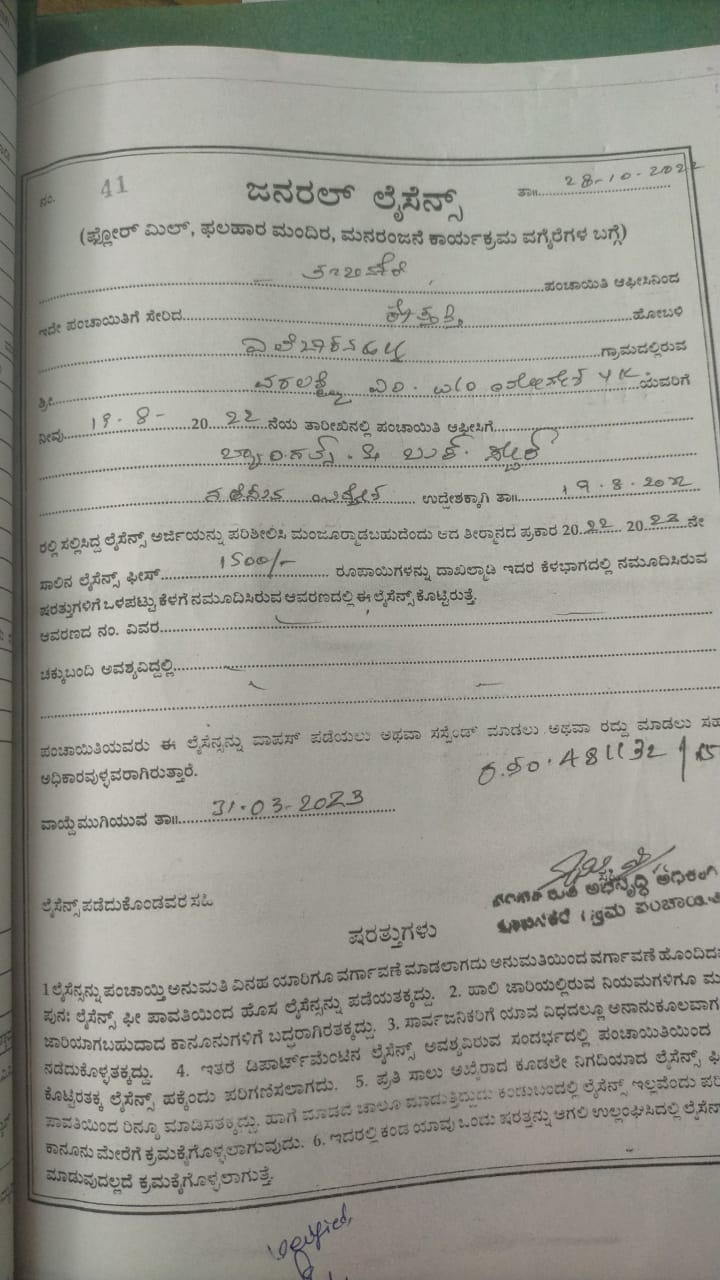 ನಂ. 41 ಜನರಲ್ ಲೈಸೆನ್ಸ್ ತಾ॥ 28-10-2022
(ಫ್ಲೋರ್ ಮಿಲ್, ಫಲಹಾರ ಮಂದಿರ, ಮನರಂಜನೆ ಕಾರ್ಯಕ್ರಮ ವಗೈರೆಗಳ ಬಗ್ಗೆ)
ಪಂಚಾಯಿತಿ ಆಫೀಸಿನಿಂದ
ಇದೇ ಪಂಚಾಯಿತಿಗೆ ಸೇರಿದ ಹೋಬಳಿ
ಗ್ರಾಮದಲ್ಲಿರುವ
ಶ್ರೀ ವರಲಕ್ಷ್ಮಿ ಎಂ. W/O Y K. ಯವರಿಗೆ
ನೀವು 19-8- 20 22 ನೆಯ ತಾರೀಖಿನಲ್ಲಿ ಪಂಚಾಯಿತಿ ಆಫೀಸಿಗೆ
ಬ್ಯಾಂಗಲ್ಸ್ & ಬುಕ್ ಸ್ಟೋರ್
ಉದ್ದೇಶಕ್ಕಾಗಿ ತಾ॥ 19.8.2022
ರಲ್ಲಿ ಸಲ್ಲಿಸಿದ್ದ ಲೈಸೆನ್ಸ್ ಅರ್ಜಿಯನ್ನು ಪರಿಶೀಲಿಸಿ ಮಂಜೂರ್ಮಾಡಬಹುದೆಂದು ಆದ ತೀರ್ಮಾನದ ಪ್ರಕಾರ 20 22 20 23 ನೇ
ಸಾಲಿನ ಲೈಸೆನ್ಸ್ ಫೀಸ್ 1500/- ರೂಪಾಯಿಗಳನ್ನು ದಾಖಲ್ಮಾಡಿ ಇದರ ಕೆಳಭಾಗದಲ್ಲಿ ನಮೂದಿಸಿರುವ
ಷರತ್ತುಗಳಿಗೆ ಒಳಪಟ್ಟು ಕೆಳಗೆ ನಮೂದಿಸಿರುವ ಆವರಣದಲ್ಲಿ ಈ ಲೈಸೆನ್ಸ್ ಕೊಟ್ಟಿರುತ್ತೆ.
ಆವರಣದ ನಂ. ವಿವರ
ಚಕ್ಕುಬಂದಿ ಅವಶ್ಯವಿದ್ದಲ್ಲಿ
ಪಂಚಾಯಿತಿಯವರು ಈ ಲೈಸೆನ್ಸನ್ನು ವಾಪಸ್ ಪಡೆಯಲು ಅಥವಾ ಸಸ್ಪೆಂಡ್ ಮಾಡಲು ಅಥವಾ ರದ್ದು ಮಾಡಲು ಸಹ
ಅಧಿಕಾರವುಳ್ಳವರಾಗಿರುತ್ತಾರೆ.
ವಾಯ್ದೆಮುಗಿಯುವ ತಾ॥ 31-03-2023
ಲೈಸೆನ್ಸ್ ಪಡೆದುಕೊಂಡವರ ಸಹಿ
ಅಭಿವೃದ್ಧಿ ಅಧಿಕಾರಿ
ಗ್ರಾಮ ಪಂಚಾಯಿತಿ
ಷರತ್ತುಗಳು
1 ಲೈಸೆನ್ಸನ್ನು ಪಂಚಾಯ್ತಿ ಅನುಮತಿ ವಿನಹ ಯಾರಿಗೂ ವರ್ಗಾವಣೆ ಮಾಡಲಾಗದು ಅನುಮತಿಯಿಂದ ವರ್ಗಾವಣೆ ಹೊಂದಿದ
ಪುನಃ ಲೈಸೆನ್ಸ್ ಫೀ ಪಾವತಿಯಿಂದ ಹೊಸ ಲೈಸೆನ್ಸನ್ನು ಪಡೆಯತಕ್ಕದ್ದು. 2. ಹಾಲಿ ಜಾರಿಯಲ್ಲಿರುವ ನಿಯಮಗಳಿಗೂ ಮು
ಜಾರಿಯಾಗಬಹುದಾದ ಕಾನೂನುಗಳಿಗೆ ಬದ್ಧರಾಗಿರತಕ್ಕದ್ದು. 3. ಸಾರ್ವಜನಿಕರಿಗೆ ಯಾವ ವಿಧದಲ್ಲೂ ಅನಾನುಕೂಲವಾಗ
ನಡೆದುಕೊಳ್ಳತಕ್ಕದ್ದು. 4. ಇತರೆ ಡಿಪಾರ್ಟ್‌ಮೆಂಟಿನ ಲೈಸೆನ್ಸ್ ಅವಶ್ಯವಿರುವ ಸಂದರ್ಭದಲ್ಲಿ ಪಂಚಾಯಿತಿಯಿಂದ
ಕೊಟ್ಟಿರತಕ್ಕ ಲೈಸೆನ್ಸ್ ಹಕ್ಕೆಂದು ಪರಿಗಣಿಸಲಾಗದು. 5. ಪ್ರತಿ ಸಾಲು ಅಖೈರಾದ ಕೂಡಲೇ ನಿಗದಿಯಾದ ಲೈಸೆನ್ಸ್ ಫೀ
ಪಾವತಿಯಿಂದ ರಿನ್ಯೂ ಮಾಡಿಸತಕ್ಕದ್ದು. ಹಾಗೆ ಮಾಡದೆ ಚಾಲೂ ಮಾಡುತ್ತಿದ್ದುದು ಕಂಡುಬಂದಲ್ಲಿ ಲೈಸೆನ್ಸ್ ಇಲ್ಲವೆಂದು ಪರಿ
ಕಾನೂನು ಮೇರೆಗೆ ಕ್ರಮಕೈಗೊಳ್ಳಲಾಗುವುದು. 6. ಇದರಲ್ಲಿ ಕಂಡ ಯಾವು ಒಂದು ಷರತ್ತನ್ನು ಆಗಲಿ ಉಲ್ಲಂಘಿಸಿದಲ್ಲಿ ಲೈಸೆನ್
ಮಾಡುವುದಲ್ಲದೆ ಕ್ರಮಕೈಗೊಳ್ಳಲಾಗುತ್ತೆ.
Verified